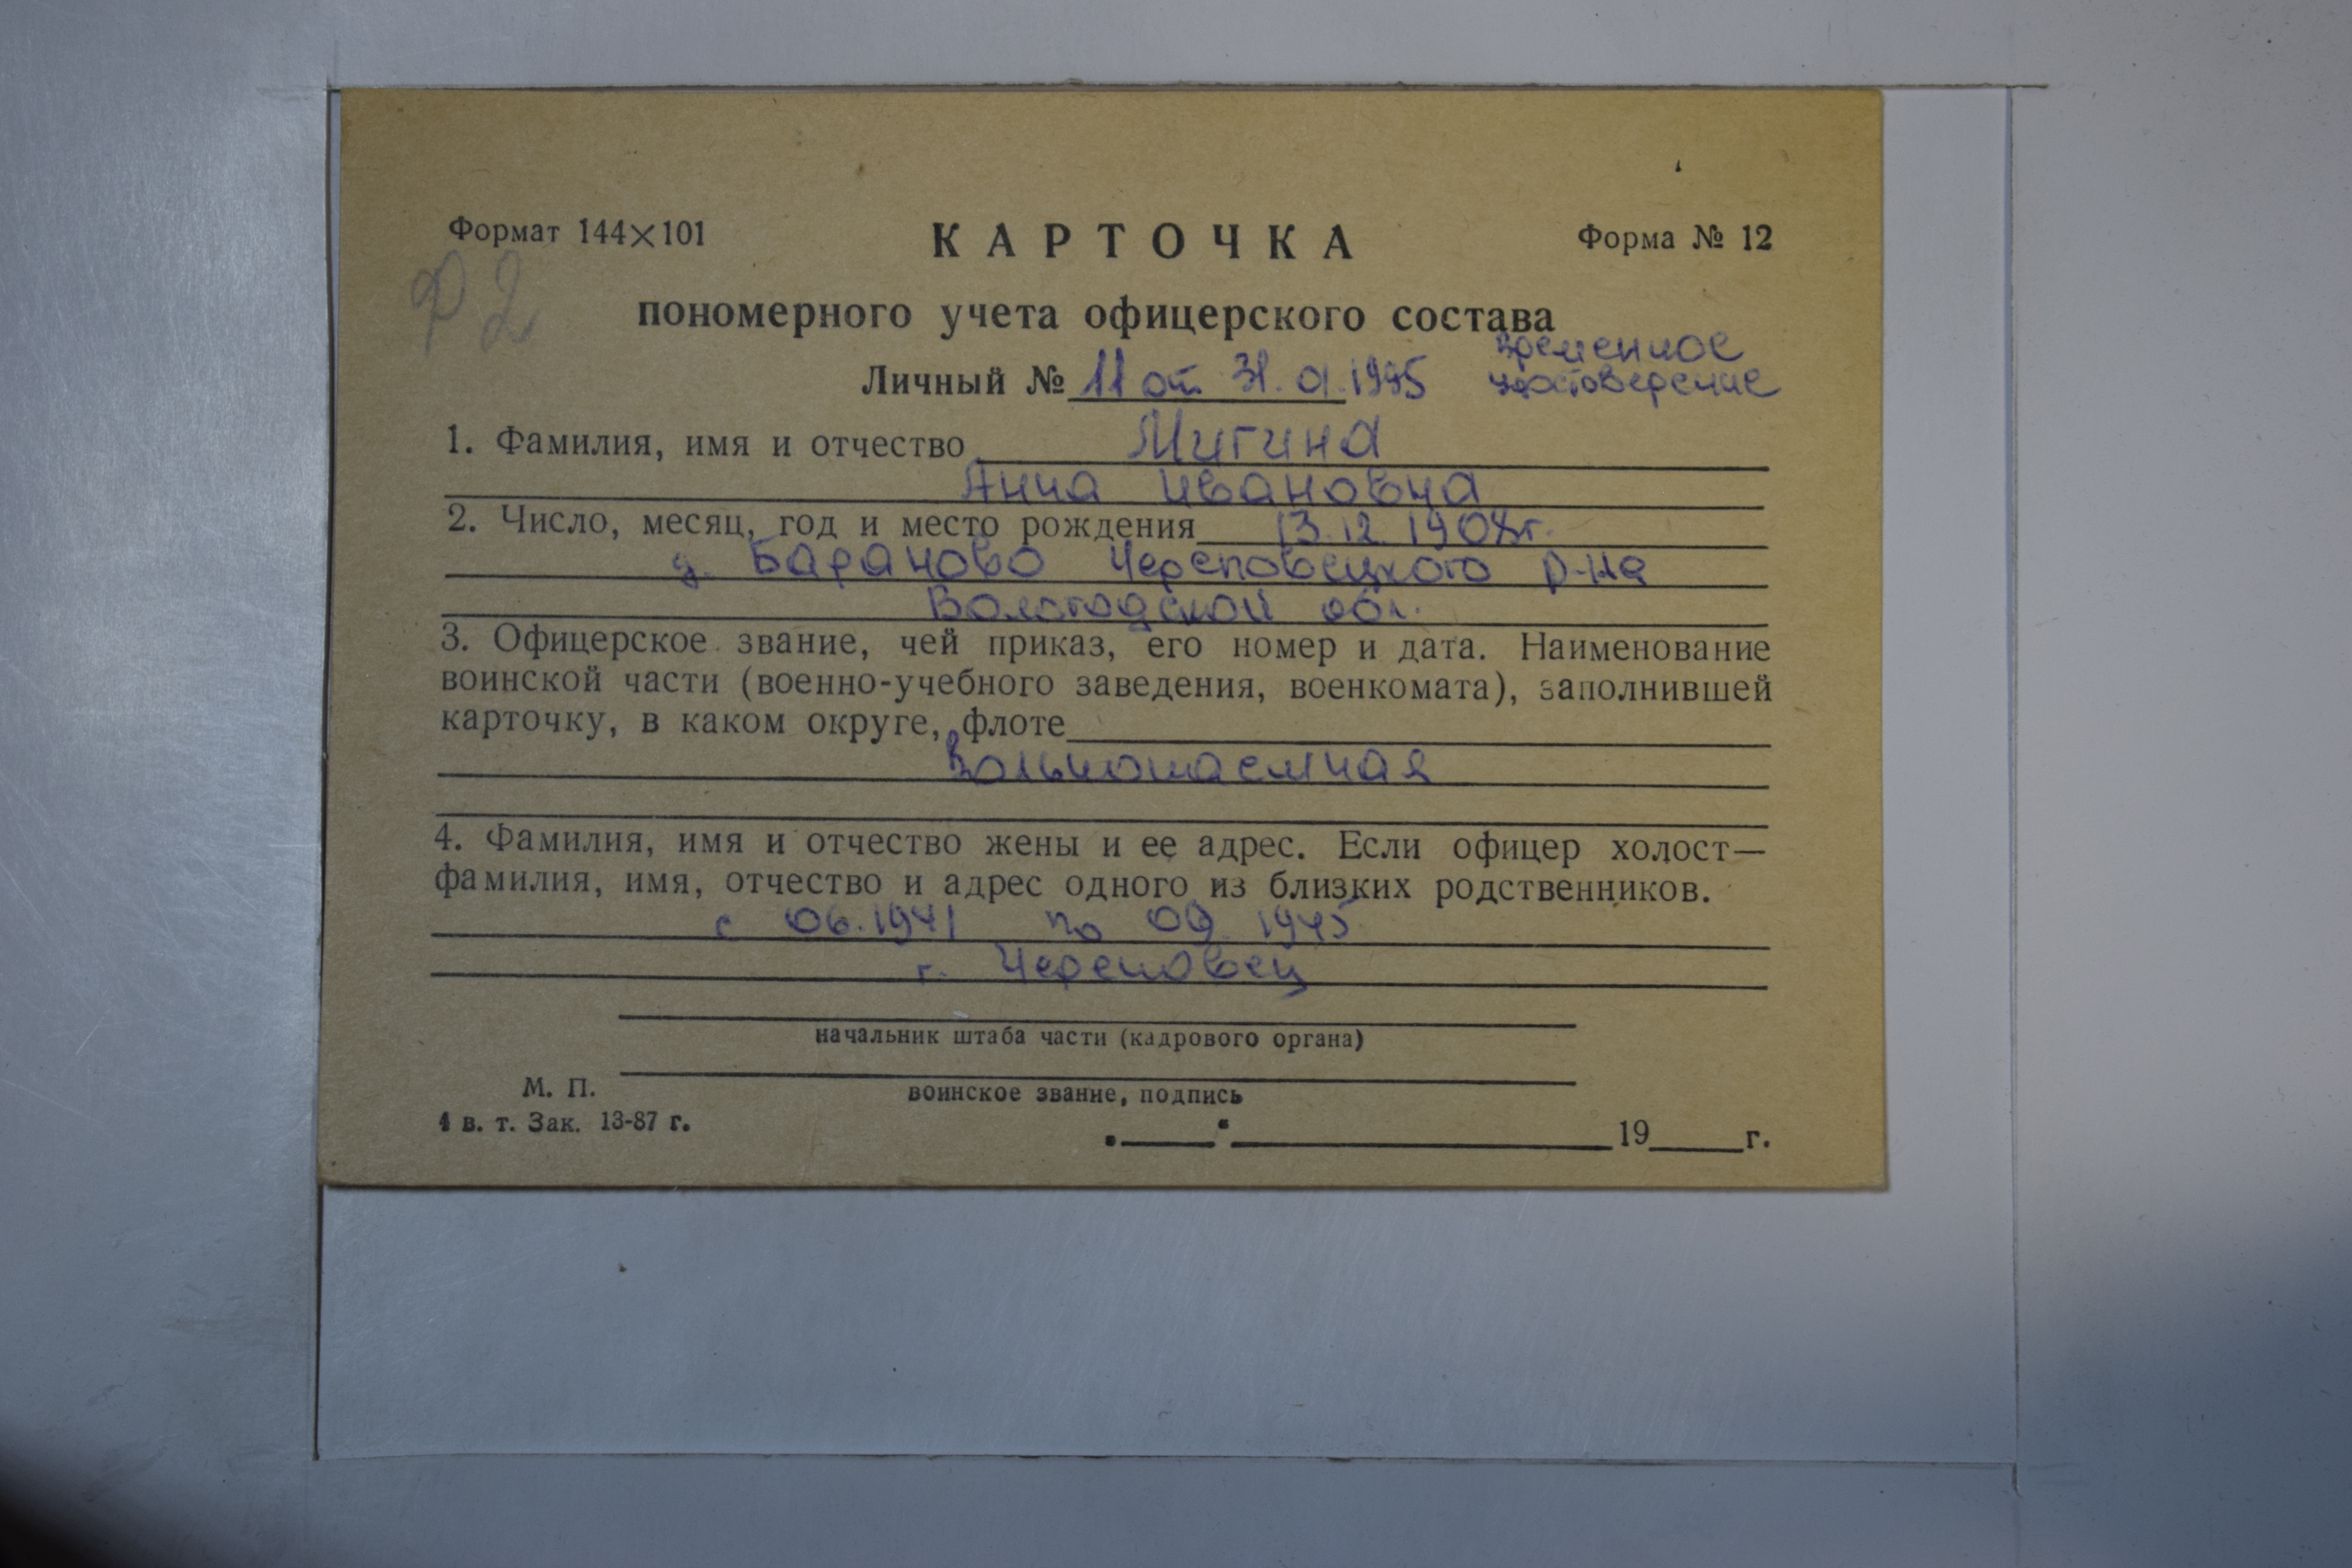 Формат 144×101
КАРТОЧКА
Форма № 12
Ф2
пономерного учета офицерского состава
временное
Личный № 11 от 31.01.1995 удостоверение
1. Фамилия, имя и отчество Мигина
Анна Ивановна
2. Число, месяц, год и место рождения 13.12.1908г.
д. Бараново Череповецкого р-на
Вологодской обл.
3. Офицерское звание, чей приказ, его номер и дата. Наименование
воинской части (военно-учебного заведения, военкомата), заполнившей
карточку, в каком округе, флоте
Вольнонаемная
4. Фамилия, имя и отчество жены и ее адрес. Если офицер холост—
фамилия, имя, отчество и адрес одного из близких родственников.
с 06.1941 по 09.1945
г. Череповец
начальник штаба части (кадрового органа)
М. П.
воинское звание, подпись
1 в. т. Зак. 13-87 г.
19 г.